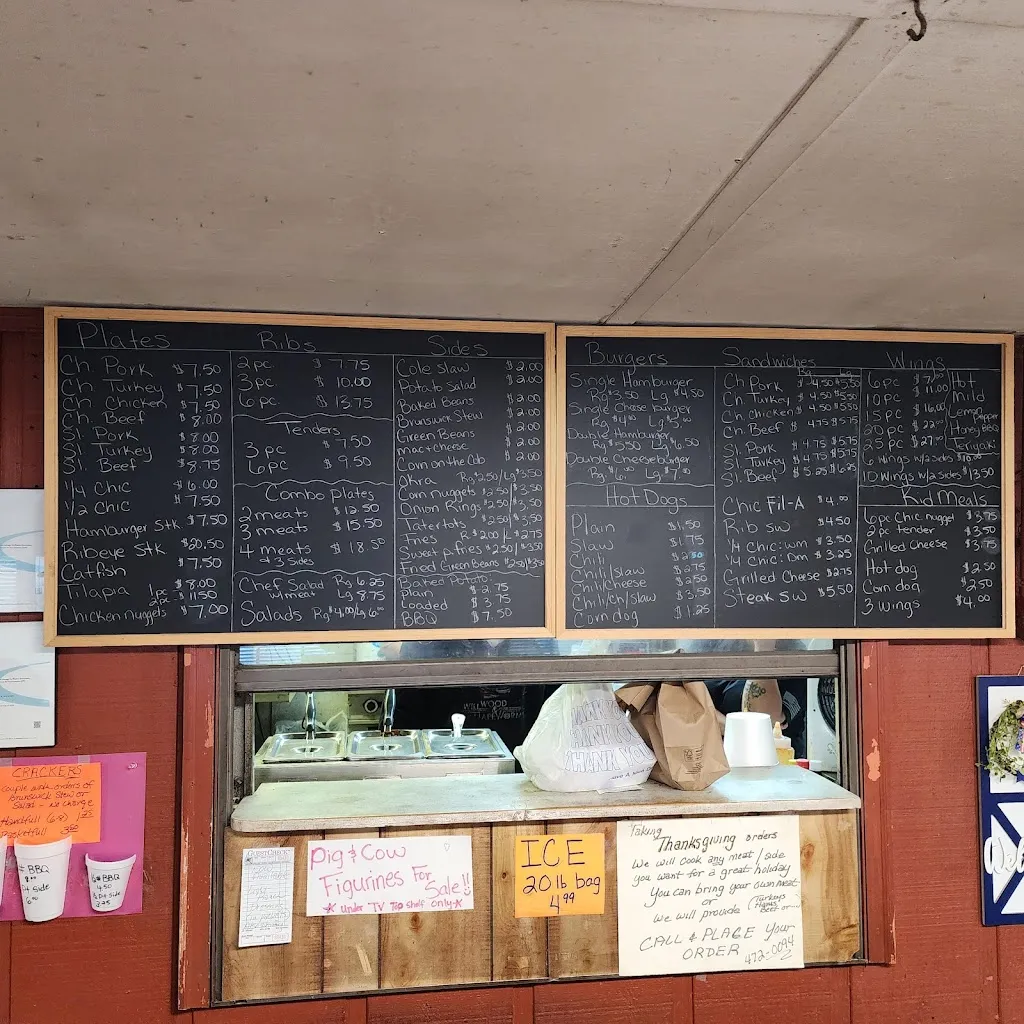 Plates
Ch. Pork $7.50
Ch. Turkey $7.50
Ch. Chicken $7.50
Ch. Beef $8.00
Sl. Pork $8.00
Sl. Turkey $8.00
Sl. Beef $8.75
1/4 Chic $6.00
1/2 Chic $7.50
Hamburger Stk $7.50
Ribeye Stk $20.50
Catfish $7.50
Tilapia 1pc $8.00
2pc $11.50
Chicken nuggets $7.00
Ribs
2pc $7.75
3pc $10.00
6pc $13.75
Tenders
3pc $7.50
6pc $9.50
Combo Plates
2 meats $12.50
3 meats $15.50
4 meats $18.50
& 3 sides
Chef Salad Rg 6.25
w/meat Lg 8.75
Salads Rg $4.00/Lg 6.00
Sides
Cole Slaw $2.00
Potato Salad $2.00
Baked Beans $2.00
Brunswick Stew $2.00
Green Beans $2.00
mac + cheese $2.00
Corn on the Cob $2.00
Okra Rg $2.50/Lg $3.50
Corn nuggets $2.50/$3.50
Onion Rings $2.50/$3.50
Tatertots $2.50/$3.50
Fries $2.00/Lg $2.75
Sweet p. fries $2.50/$3.50
Fried Green Beans $2.50/$3.50
Baked Potato:
Plain $2.75
Loaded $3.75
BBQ $7.50
Burgers
Single Hamburger
Rg $3.50 Lg $4.50
Single Cheese burger
Rg $4.00 Lg
Double Hamburger
$5.50 Lg $6.50
Double Cheeseburger
Rg $6.00 Lg $7.00
Hot Dogs
Plain $1.50
Slaw $1.75
Chili $2.50
Chili/slaw $2.75
Chili/cheese $2.50
Chili/ch/slaw $3.50
Corn dog $1.25
Sandwiches
Rg Lg
Ch. Pork $4.50 $5.50
Ch. Turkey $4.50 $5.50
Ch. chicken $4.50 $5.50
Ch. Beef $4.75 $5.75
Sl. Pork $4.75 $5.75
Sl. Turkey $4.75 $5.75
Sl. Beef $5.25 $6.25
Chic Fil-A $4.00
Rib sw $4.50
1/4 chic: wm $3.50
1/4 chic: Dm $3.25
Grilled Cheese $2.75
Steak sw $5.50
Wings
6pc $7.00
10pc $11.00
15pc $16.00
20pc $22.00
25pc $27.00
Hot
Mild
Lemon Pepper
Honey BBQ
Teriyaki
6 Wings w/2 sides $10.00
10 Wings w/2 sides $13.50
Kid Meals
6pc Chic nugget $3.75
2pc tender $3.50
Grilled Cheese $3.75
Hot dog $2.50
Corn dog $2.50
3 wings $4.00
THANK YOU
THANK YOU
THANK YOU
CRACKERS
Couple with orders of
Brunswick Stew or
Salad - No Charge
Handfull (6-8) 1.25
Basketfull 3.50
BBQ
side
BBQ
4.50
side
GUEST CHECK
Pig & Cow
Figurines For
Sale!!
* Under TV Top shelf only *
ICE
20 lb bag
4.99
Taking Thanksgiving orders
We will cook any meat/side
you want for a great holiday
You can bring your own meat
or
we will provide (Turkeys
Hams
Beef or...
CALL & PLACE your
ORDER 472-0094